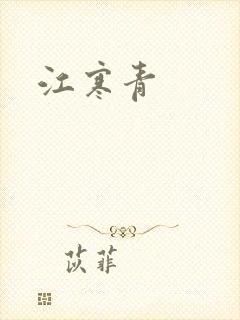 江寒青
苡菲